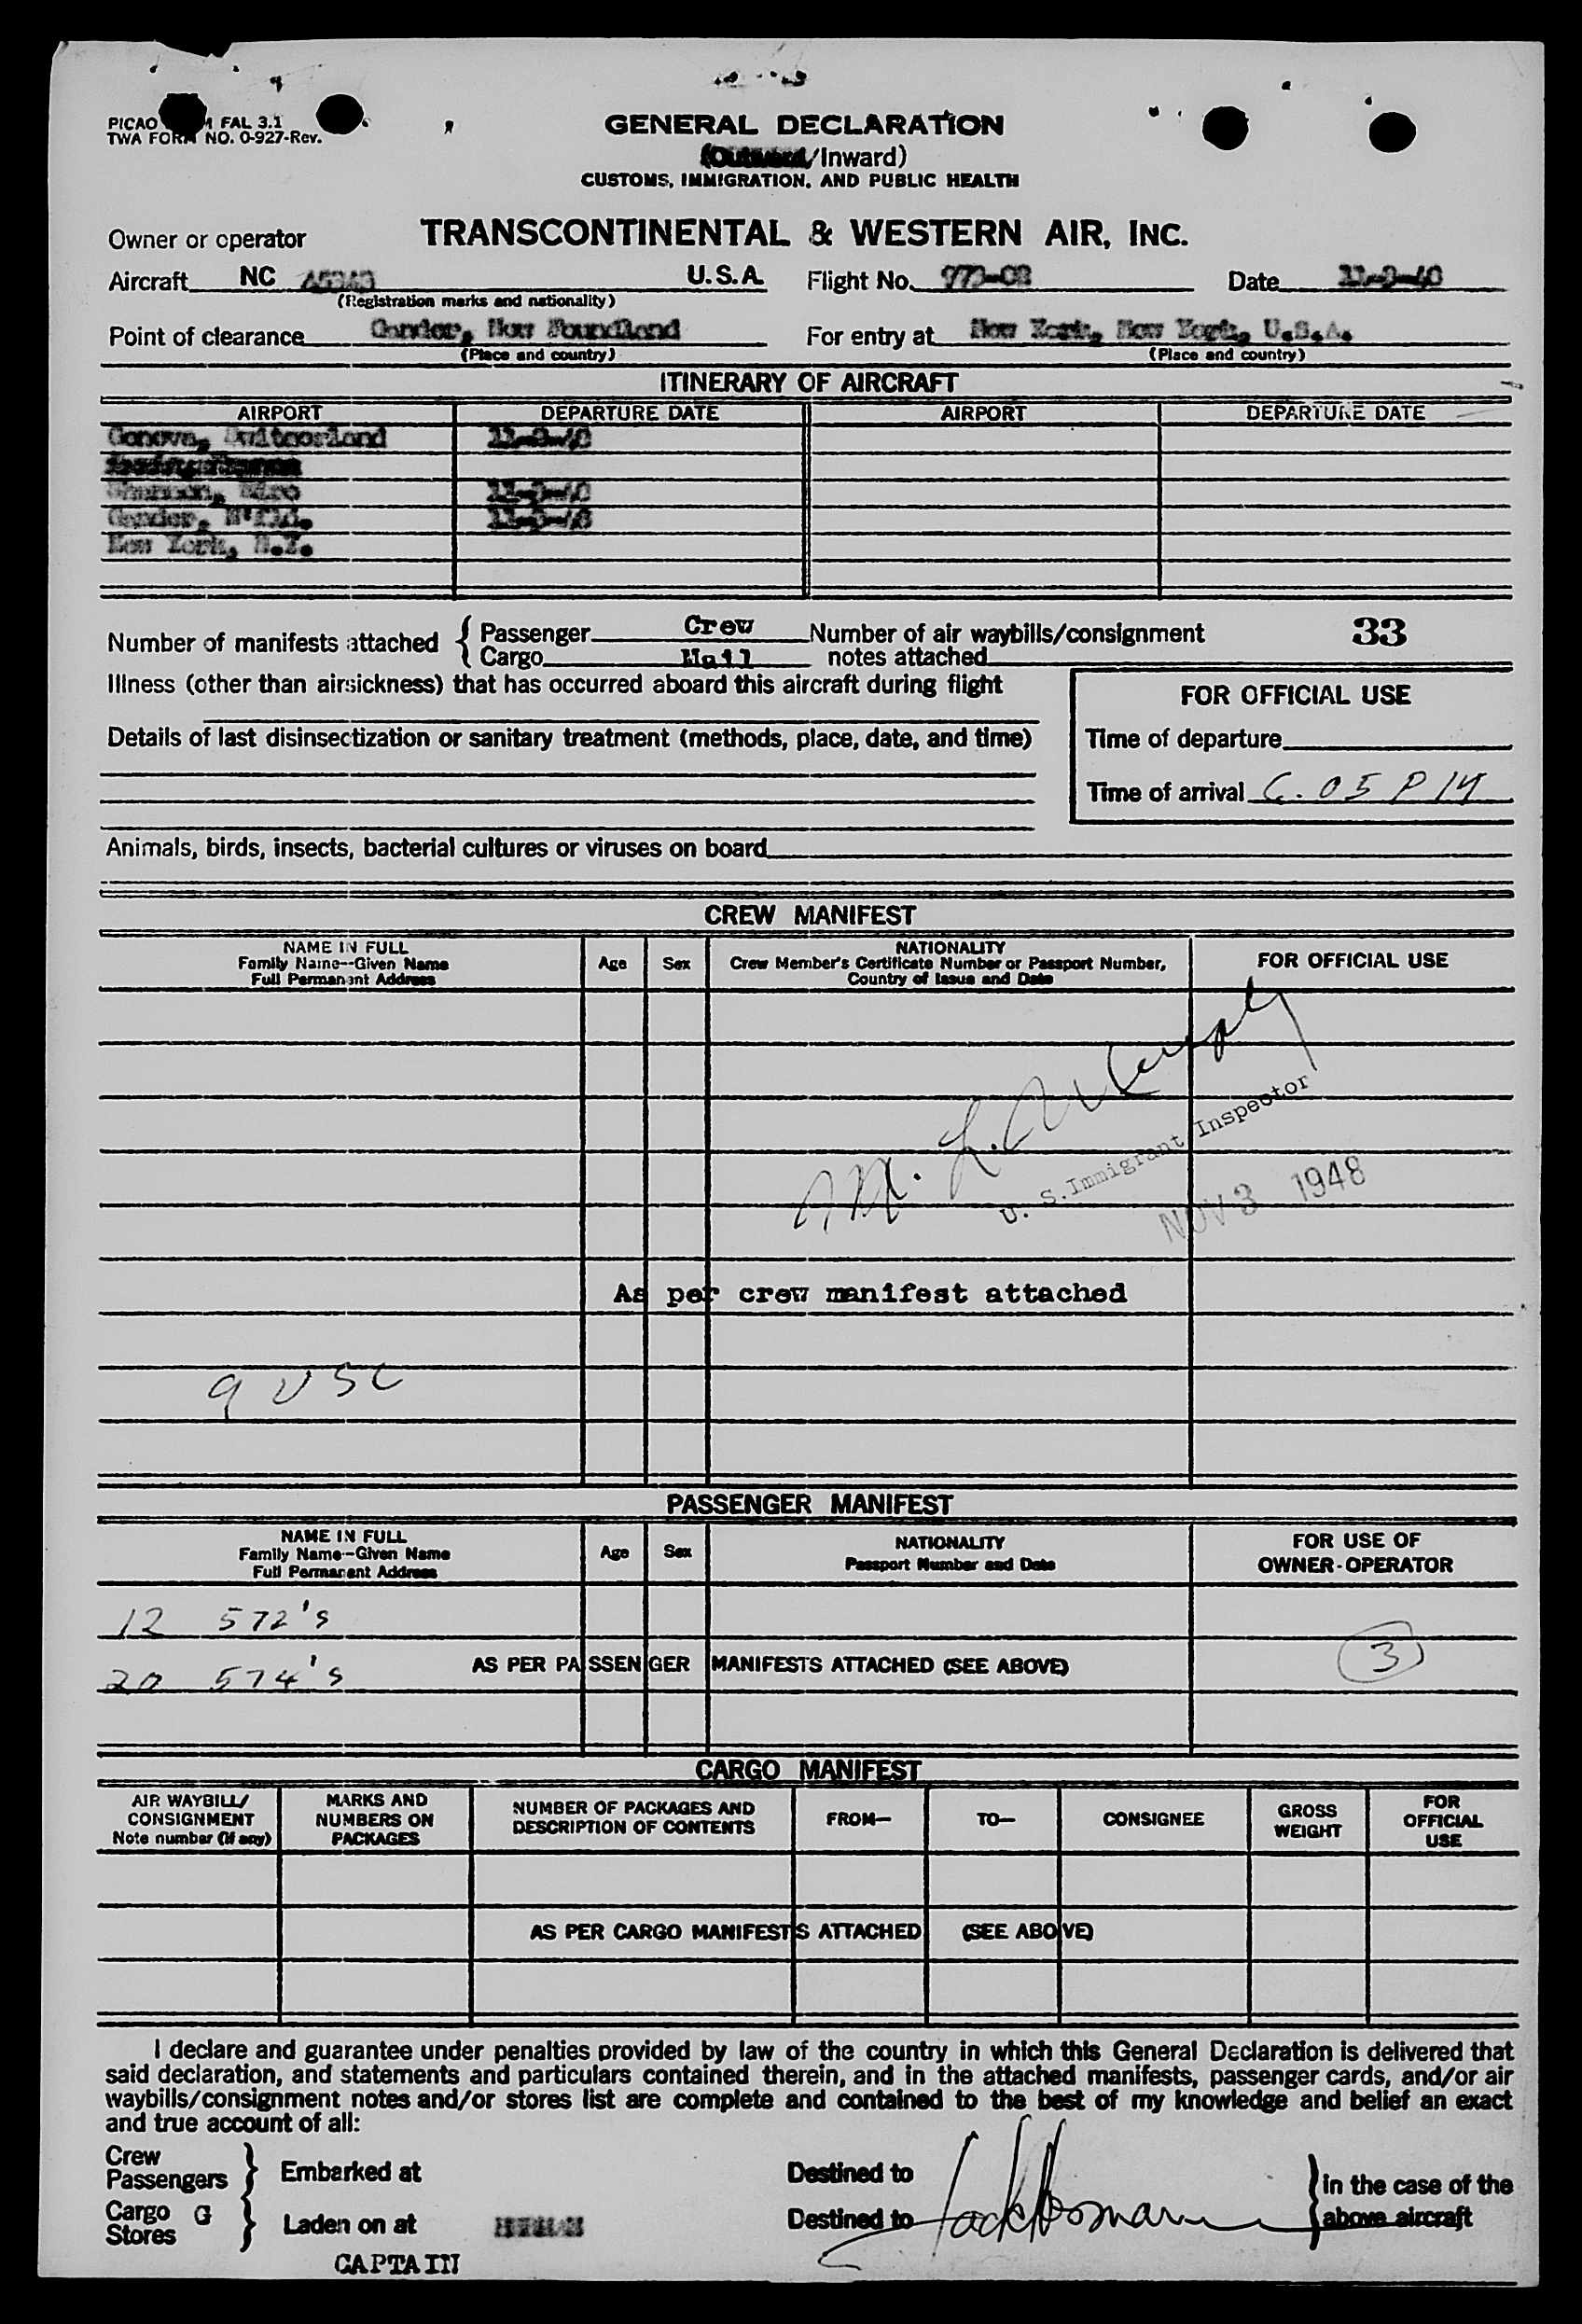 PICAO FAL 3.1
TWA FORM NO. O-927-Rev.
GENERAL DECLARATION
(Outward/Inward)
CUSTOMS, IMMIGRATION, AND PUBLIC HEALTH
Owner or operator TRANSCONTINENTAL & WESTERN AIR, INC.
Aircraft NC U.S.A. Flight No. Date
(Registration marks and nationality)
Point of clearance Gander, New Foundland For entry at New York, New York, U.S.A.
(Place and country) (Place and country)
ITINERARY OF AIRCRAFT
AIRPORT DEPARTURE DATE AIRPORT DEPARTURE DATE
Geneva, Switzerland
Shannon, Eire
Gander, N'fld.
New York, N.Y.
Number of manifests attached { Passenger Crew Number of air waybills/consignment 33
Cargo Mail notes attached
Illness (other than airsickness) that has occurred aboard this aircraft during flight
FOR OFFICIAL USE
Details of last disinsectization or sanitary treatment (methods, place, date, and time)
Time of departure
Time of arrival 6.05 PM
Animals, birds, insects, bacterial cultures or viruses on board
CREW MANIFEST
NAME IN FULL
Family Name--Given Name
Full Permanent Address
Age Sex
NATIONALITY
Crew Member's Certificate Number or Passport Number,
Country of Issue and Date
FOR OFFICIAL USE
U. S. Immigrant Inspector
NOV 3 1948
As per crew manifest attached
9 USC
PASSENGER MANIFEST
NAME IN FULL
Family Name--Given Name
Full Permanent Address
Age Sex
NATIONALITY
Passport Number and Date
FOR USE OF
OWNER-OPERATOR
12 572's
20 574's AS PER PASSENGER MANIFESTS ATTACHED (SEE ABOVE) 3
CARGO MANIFEST
AIR WAYBILL/
CONSIGNMENT
Note number (if any)
MARKS AND
NUMBERS ON
PACKAGES
NUMBER OF PACKAGES AND
DESCRIPTION OF CONTENTS
FROM— TO— CONSIGNEE
GROSS
WEIGHT
FOR
OFFICIAL
USE
AS PER CARGO MANIFESTS ATTACHED (SEE ABOVE)
I declare and guarantee under penalties provided by law of the country in which this General Declaration is delivered that
said declaration, and statements and particulars contained therein, and in the attached manifests, passenger cards, and/or air
waybills/consignment notes and/or stores list are complete and contained to the best of my knowledge and belief an exact
and true account of all:
Crew
Passengers } Embarked at Destined to
Cargo G
Stores } Laden on at Destined to
} in the case of the
above aircraft
CAPTAIN